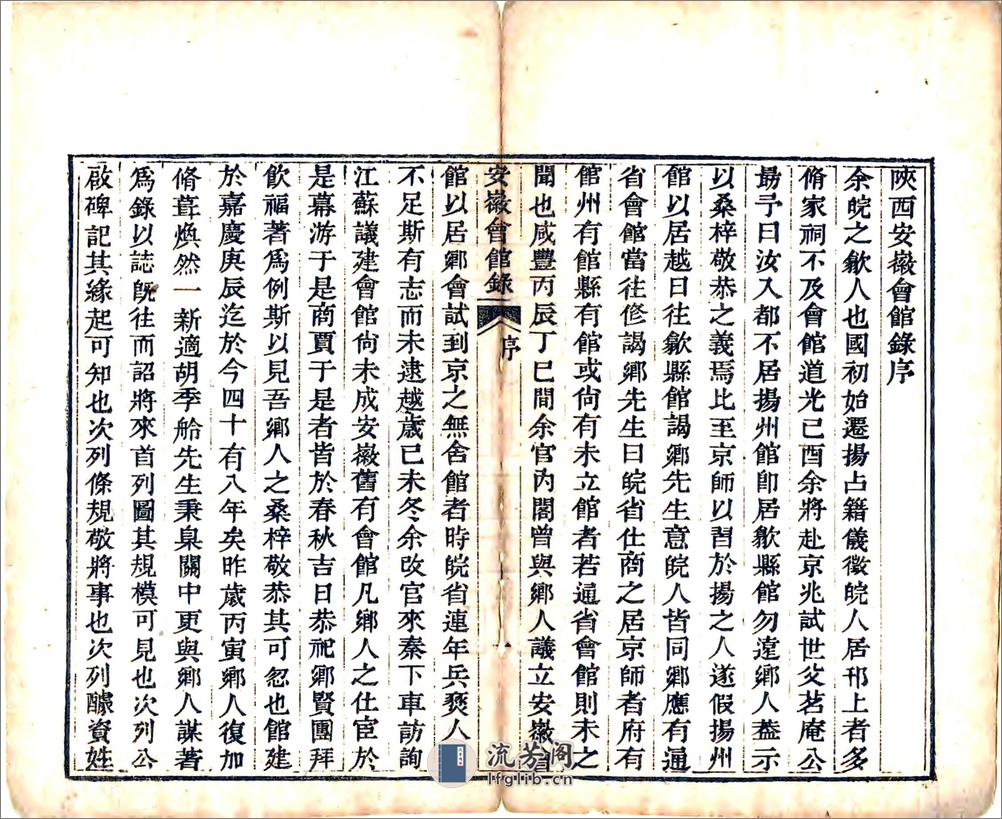 陝西安徽會館錄序
余皖之歙人也國初始遷揚占籍儀徵皖人居邗上者多
脩家祠不及會館道光己酉余將赴京兆試世父茗庵公
勗予曰汝入都不居揚州館卽居歙縣館勿遠鄉人葢示
以桑梓敬恭之義焉比至京師以習於揚之人遂假揚州
館以居越日往歙縣館謁鄉先生意皖人皆同鄉應有通
省會館當往修謁鄉先生曰皖省仕商之居京師者府有
館州有館縣有館或尙有未立館者若通省會館則未之
聞也咸豐丙辰丁巳閒余官內閣曾與鄉人議立安徽
安徽會館錄 序 一
館以居鄉會試到京之無舍館者時皖省連年兵燹人
不足斯有志而未逮越歲己未冬余改官來秦下車訪詢
江蘇議建會館尙未成安徽舊有會館凡鄉人之仕宦於
是幕游于是商賈于是者皆於春秋吉日恭祀鄉賢團拜
飮福著爲例斯以見吾鄉人之桑梓敬恭其可忽也館建
於嘉慶庚辰迄於今四十有八年矣昨歲丙寅鄉人復加
脩葺煥然一新適胡季舲先生秉臬關中更與鄉人謀著
爲錄以誌旣往而詔將來首列圖其規模可見也次列公
啟碑記其緣起可知也次列條規敬將事也次列醵資姓
流芳阁
lfglib.cn